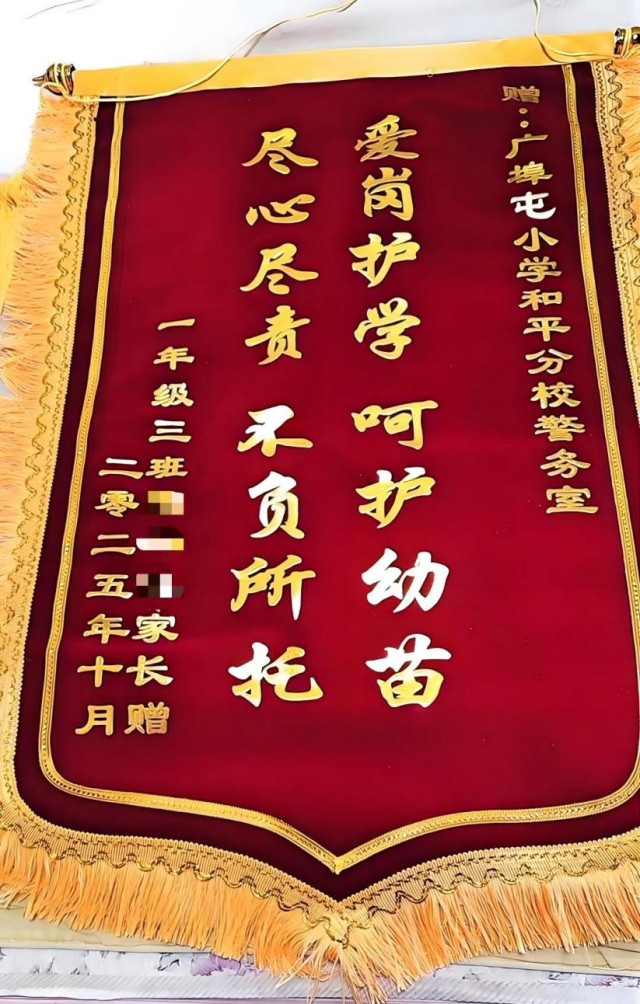 赠:广埠屯小学和平分校警务室
爱岗护学 呵护幼苗
尽心尽责 不负所托
一年级三班家长赠
二零二五年十月